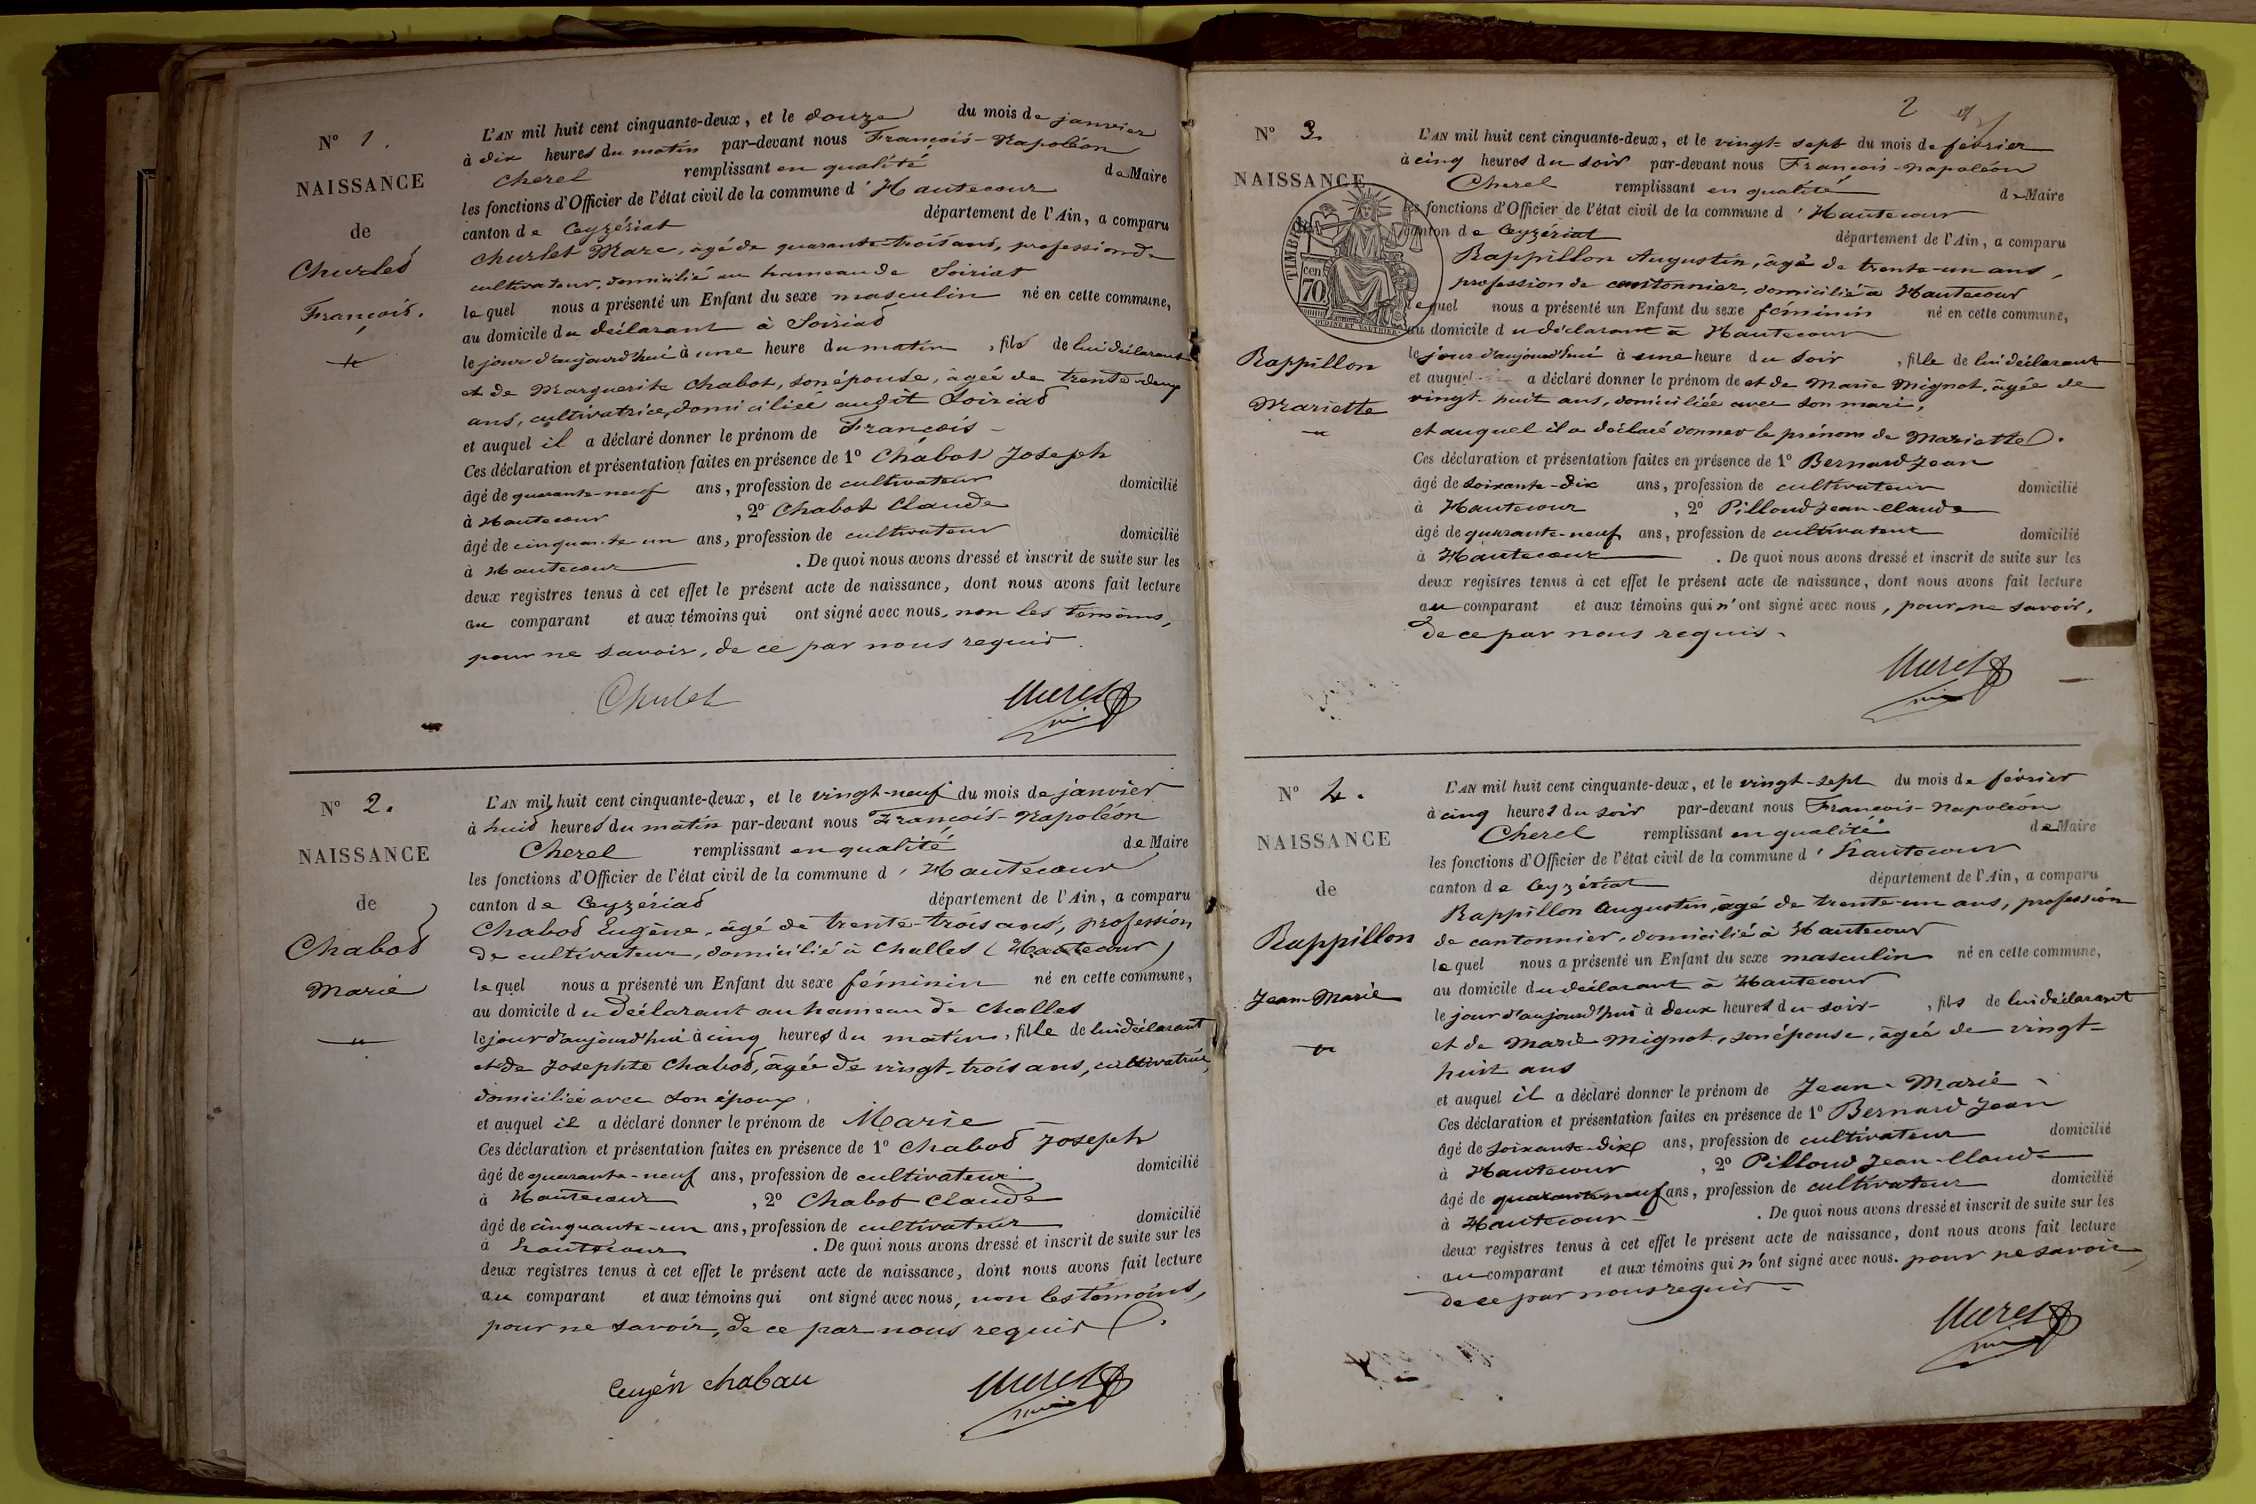 N° 1.
NAISSANCE
de
Churlet
François.
L'AN mil huit cent cinquante-deux, et le douze du mois de janvier
à dix heures du matin par-devant nous François-Napoléon
Cherel remplissant en qualité de Maire
les fonctions d'Officier de l'état civil de la commune d'Hautecour
canton de Ceyzériat département de l'Ain, a comparu
Churlet Marc, âgé de quarante-trois ans, profession de
cultivateur, domicilié au hameau de Soiriat
lequel nous a présenté un Enfant du sexe masculin né en cette commune,
au domicile du déclarant à Soiriat
le jour d'aujourd'hui à une heure du matin, fils de lui déclarant
et de Marguerite Chabot, son épouse, âgée de trente-deux
ans, cultivatrice, domiciliée audit Soiriat
et auquel il a déclaré donner le prénom de François
Ces déclaration et présentation faites en présence de 1° Chabot Joseph
âgé de quarante-neuf ans, profession de cultivateur domicilié
à Hautecour, 2° Chabot Claude
âgé de cinquante-un ans, profession de cultivateur domicilié
à Hautecour. De quoi nous avons dressé et inscrit de suite sur les
deux registres tenus à cet effet le présent acte de naissance, dont nous avons fait lecture
au comparant et aux témoins qui ont signé avec nous, non les témoins,
pour ne savoir, de ce par nous requis.
Churlet
N° 2.
NAISSANCE
de
Chabot
Marie
L'AN mil huit cent cinquante-deux, et le vingt-neuf du mois de janvier
à huit heures du matin par-devant nous François-Napoléon
Cherel remplissant en qualité de Maire
les fonctions d'Officier de l'état civil de la commune d'Hautecour
canton de Ceyzériat département de l'Ain, a comparu
Chabot Eugène, âgé de trente-trois ans, profession
de cultivateur, domicilié à Challes (Hautecour)
lequel nous a présenté un Enfant du sexe féminin né en cette commune,
au domicile du déclarant au hameau de Challes
le jour d'aujourd'hui à cinq heures du matin, fille de lui déclarant
et de Josephte Chabot, âgée de vingt-trois ans, cultivatrice,
domiciliée avec son époux,
et auquel il a déclaré donner le prénom de Marie
Ces déclaration et présentation faites en présence de 1° Chabot Joseph
âgé de quarante-neuf ans, profession de cultivateur domicilié
à Hautecour, 2° Chabot Claude
âgé de cinquante-un ans, profession de cultivateur domicilié
à Hautecour. De quoi nous avons dressé et inscrit de suite sur les
deux registres tenus à cet effet le présent acte de naissance, dont nous avons fait lecture
au comparant et aux témoins qui ont signé avec nous, non les témoins,
pour ne savoir, de ce par nous requis.
Eugén chabau
2
N° 3.
NAISSANCE
de
TIMBRE
cen
70
Rappillon
Mariette
L'AN mil huit cent cinquante-deux, et le vingt-sept du mois de février
à cinq heures du soir par-devant nous François-Napoléon
Cherel remplissant en qualité de Maire
les fonctions d'Officier de l'état civil de la commune d'Hautecour
canton de Ceyzériat département de l'Ain, a comparu
Rappillon Augustin, âgé de trente-un ans,
profession de cantonnier, domicilié à Hautecour
lequel nous a présenté un Enfant du sexe féminin né en cette commune,
au domicile du déclarant à Hautecour
le jour d'aujourd'hui à une heure du soir, fille de lui déclarant
et auquel a déclaré donner le prénom de et de Marie Mignot, âgée de
vingt-huit ans, domiciliée avec son mari,
et auquel il a déclaré donner le prénom de Mariette.
Ces déclaration et présentation faites en présence de 1° Bernard Jean
âgé de soixante-dix ans, profession de cultivateur domicilié
à Hautecour, 2° Pilloud Jean-Claude
âgé de quarante-neuf ans, profession de cultivateur domicilié
à Hautecour. De quoi nous avons dressé et inscrit de suite sur les
deux registres tenus à cet effet le présent acte de naissance, dont nous avons fait lecture
au comparant et aux témoins qui n'ont signé avec nous, pour ne savoir,
de ce par nous requis.
N° 4.
NAISSANCE
de
Rappillon
Jean-Marie
L'AN mil huit cent cinquante-deux, et le vingt-sept du mois de février
à cinq heures du soir par-devant nous François-Napoléon
Cherel remplissant en qualité de Maire
les fonctions d'Officier de l'état civil de la commune d'hautecour
canton de Ceyzériat département de l'Ain, a comparu
Rappillon Augustin, âgé de trente-un ans, profession
de cantonnier, domicilié à Hautecour
lequel nous a présenté un Enfant du sexe masculin né en cette commune,
au domicile du déclarant à Hautecour
le jour d'aujourd'hui à deux heures du soir, fils de lui déclarant
et de Marie Mignot, son épouse, âgée de vingt-
huit ans
et auquel il a déclaré donner le prénom de Jean-Marie
Ces déclaration et présentation faites en présence de 1° Bernard Jean
âgé de soixante-dix ans, profession de cultivateur domicilié
à Hautecour, 2° Pilloud Jean-Claude
âgé de quarante-neuf ans, profession de cultivateur domicilié
à Hautecour. De quoi nous avons dressé et inscrit de suite sur les
deux registres tenus à cet effet le présent acte de naissance, dont nous avons fait lecture
au comparant et aux témoins qui n'ont signé avec nous. pour ne savoir,
de ce par nous requis